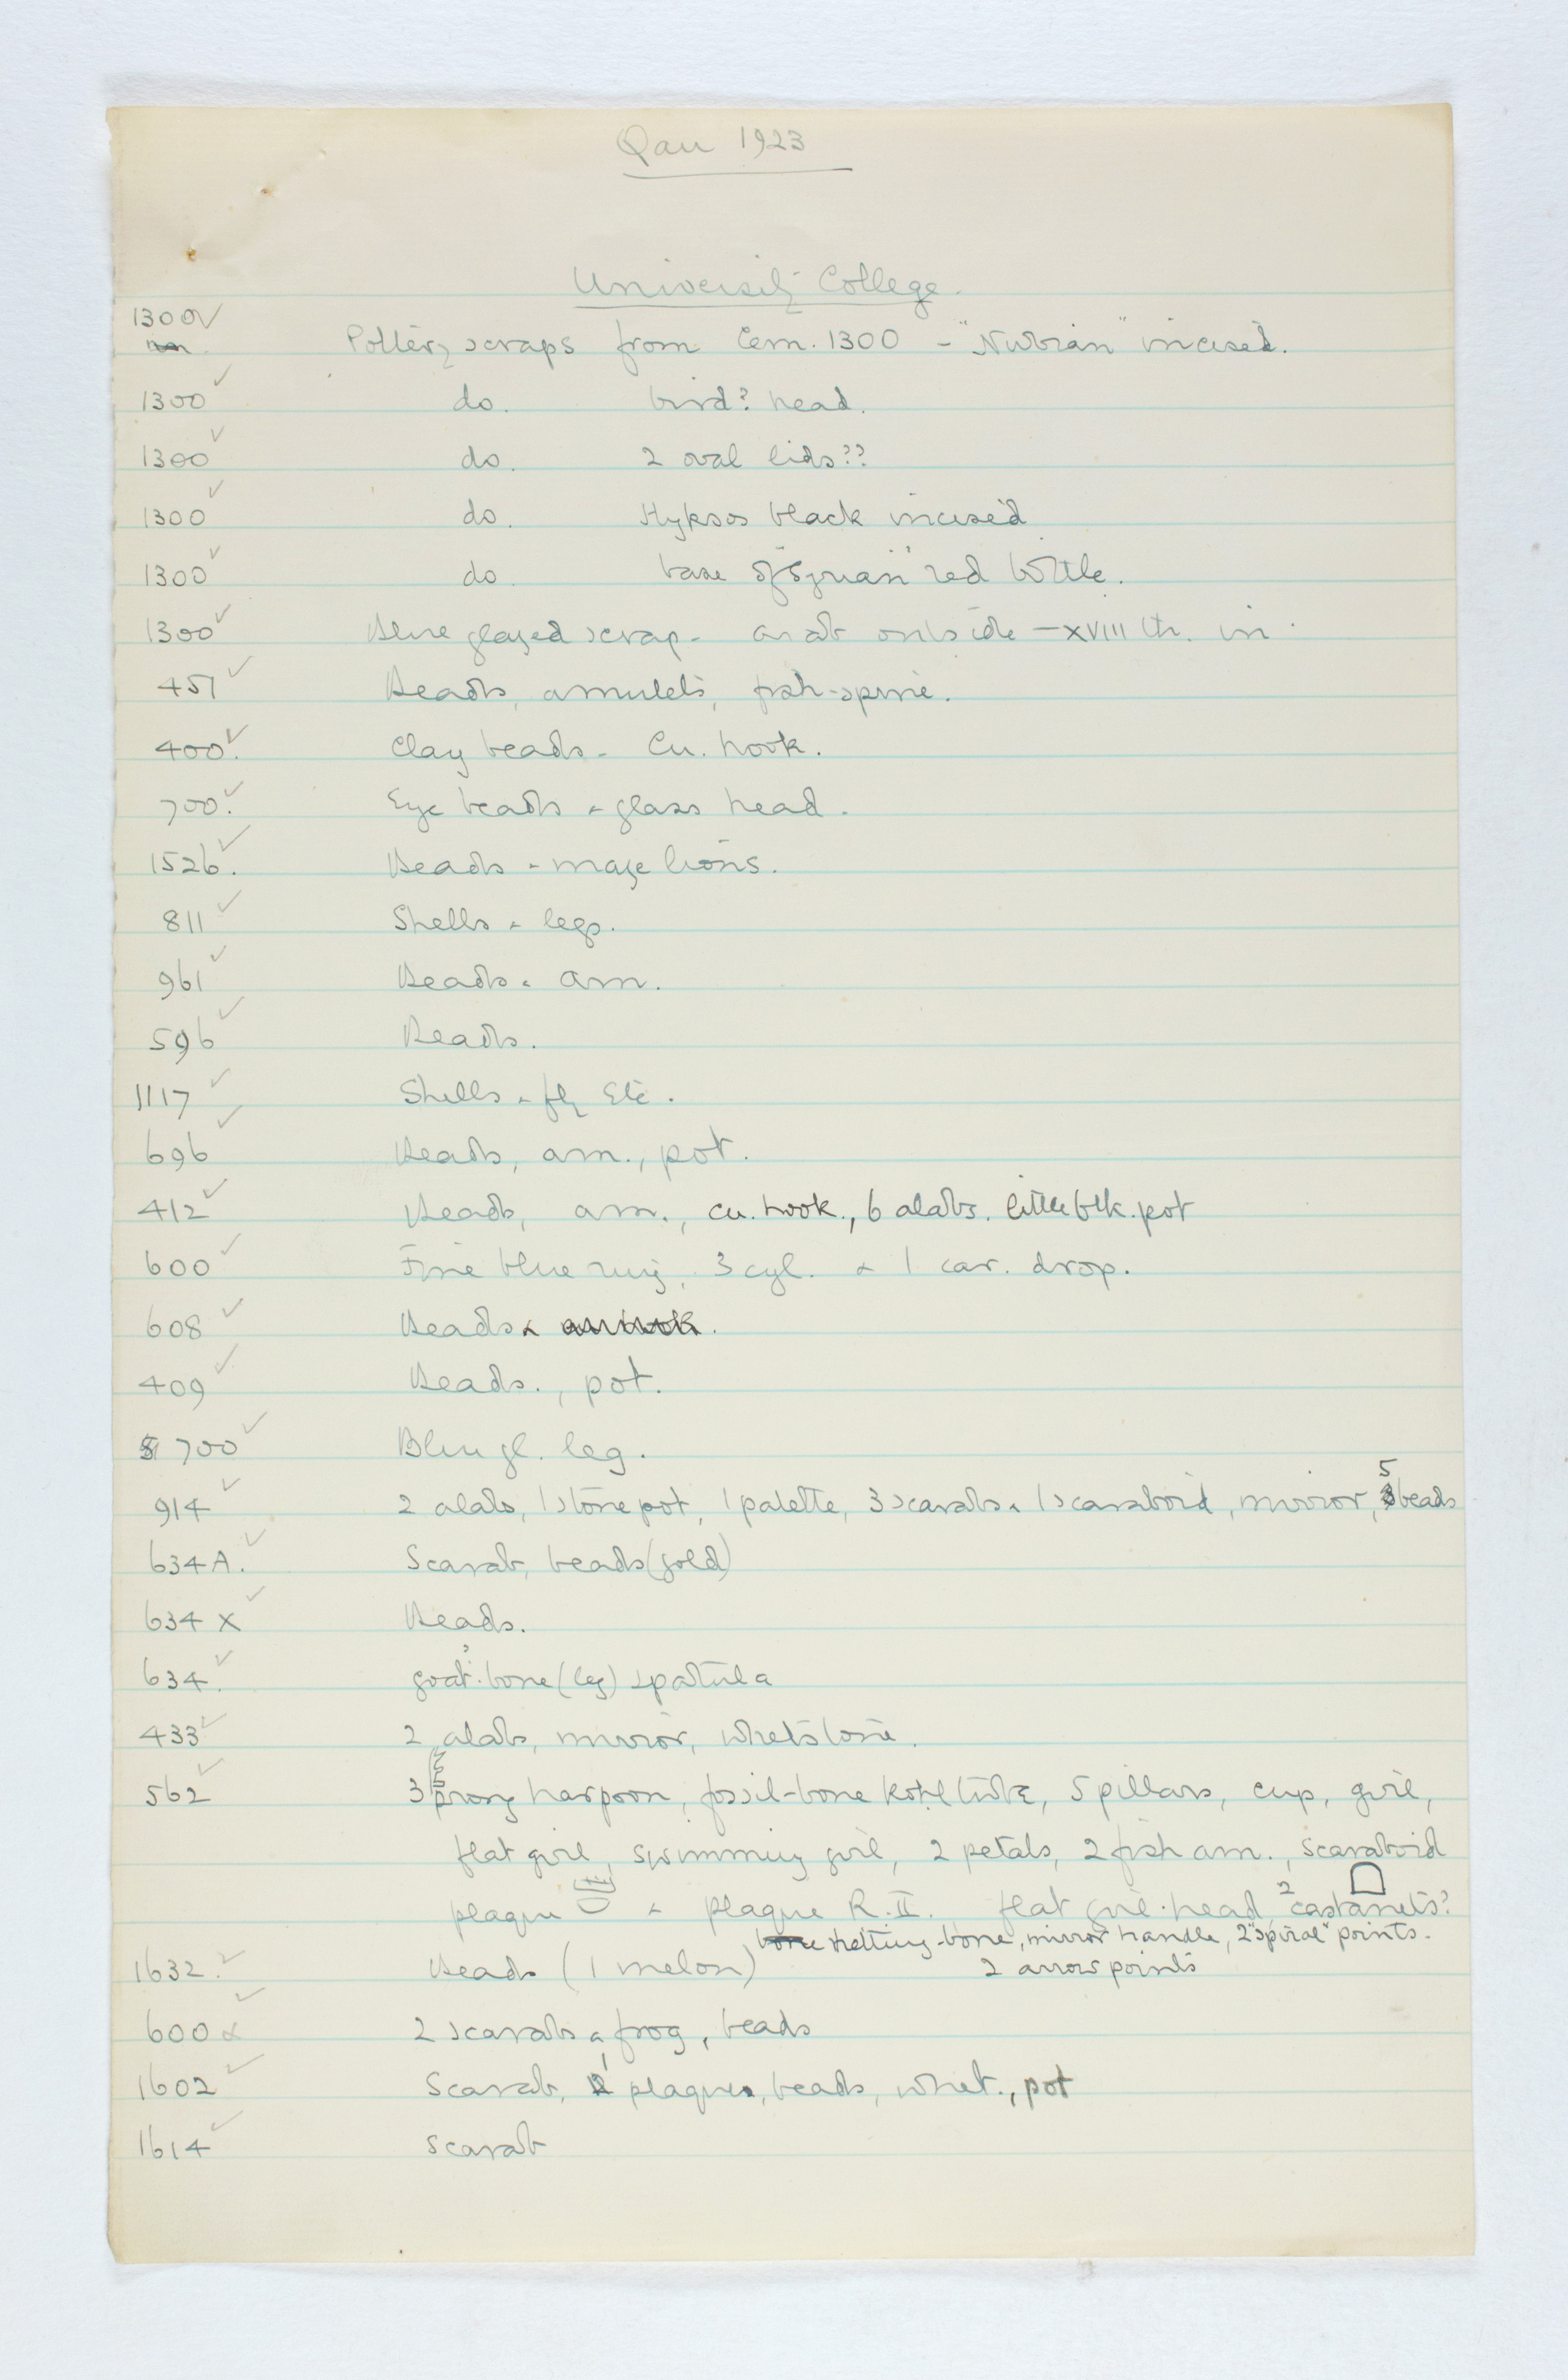 Qau 1923
University College.
1300 ✓ Pottery scraps from Cem. 1300 - "Nubian" incised.
1300 ✓ do. bird? head.
1300 ✓ do. 2 oval lids??
1300 ✓ do. Hyksos black incised
1300 ✓ do. base of "Syrian" red bottle.
1300 ✓ Blue glazed scrap - arab outside - XVIII th. in.
451 ✓ Beads, amulets, fish-spine.
400. ✓ Clay beads - Cu. hook.
700. ✓ Eye beads & glass head.
1526. ✓ Beads & maze lions.
811 ✓ Shells & legs.
961 ✓ Beads & am.
596 ✓ Beads.
1117 ✓ Shells & fly etc.
696 ✓ Beads, am., pot.
412 ✓ Beads, am., cu. hook., 6 alabs. little blk. pot
600 ✓ Fine blue ring, 3 cyl. & 1 car. drop.
608 ✓ Beads &
409 ✓ Beads., pot.
700 ✓ Blue gl. leg.
914 ✓ 2 alabs, 1 stone pot, 1 palette, 3 scarabs & 1 scaraboid, mirror, 5 beads
634 A. ✓ Scarab, beads (gold)
634 X ✓ Beads.
634. ✓ goat's bone (leg) spatula
433 ✓ 2 alabs, mirror, whetstone.
562 ✓ 3 prong harpoon, fossil-bone kohl tube, 5 pillars, cup, girl,
flat girl, swimming girl, 2 petals, 2 fish am., scaraboid
plaque & plaque R.II. flat girl-head, 2 castanets?
bone netting-bone, mirror handle, 2 "spiral" points.
1632. ✓ Beads (1 melon) 2 arrow points
600 ✓ 2 scarabs & frog, beads
1602 ✓ Scarab, 1 plaque, beads, whet., pot
1614 ✓ scarab